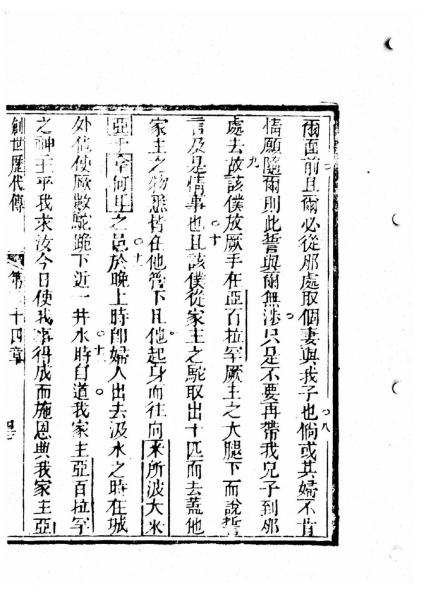 爾面前且爾必從那處取個妻與我子也倘或其婦不肯
情願隨爾則此誓與爾無涉只是不要再帶我兒子到那
處去故該僕放厥手在亞百拉罕厥主之大腿下而說誓
言及是情事也且該僕從家主之駝取出十匹而去蓋他
家主之物悉皆在他管下且他起身而往向米所波大米
亞于拿何耳之邑於晚上時即婦人出去汲水之時在城
外他使厥數駝跪下近一井水時自道我家主亞百拉罕
之神主乎我求汝今日使我事得成而施恩典我家主亞
創世歷代傳
第二十四章
八
九
十
十一
十二